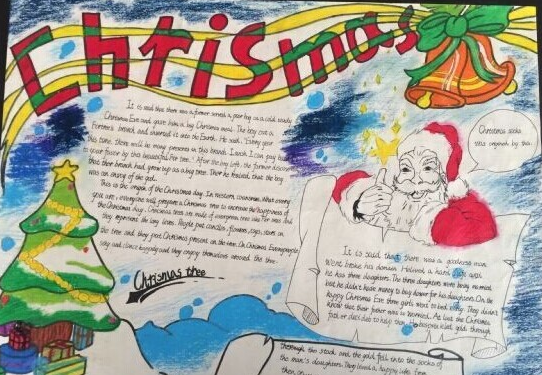 Christmas
It is said that there was a farmer served a poor boy on a cold snowy
Christmas Eve and gave him a big Christmas meal. The boy cut a
"Every year
this time, there will be many presents in this branch. I wish I can pay back
to your favor by this beautiful Pine tree." After the boy left, the farmer discovered
that their branch had grown up as a big tree. Then he realized that the boy
was an of the god.
This is the origin of the Christmas day. In western countries, what
you are, everyone will prepare a Christmas tree to increase the happiness of
the Christmas day. Christmas tree are made of evergreen tree
they represent the long lives. People put candles, flowers, toys, stars on
the tree and they put Christmas present on the tree. On Christmas Eve, people
and dance happily and they enjoy themselves around the tree.
Christmas tree
Christmas socks
was originals by this.
It is said that there was a goodness man
went broke his domain. He lived a hard life and
he has three daughters. The three daughters were being married,
but he didn't have money to buy dower for his daughters. On the
happy Christmas Eve three girls went to bed early. They didn't
know that their father was so worried. At last the Christmas
father decided to help them. He gold through
thorough the stack and the gold fall into the socks of
the man's daughters. They lived a happy life from
then on...